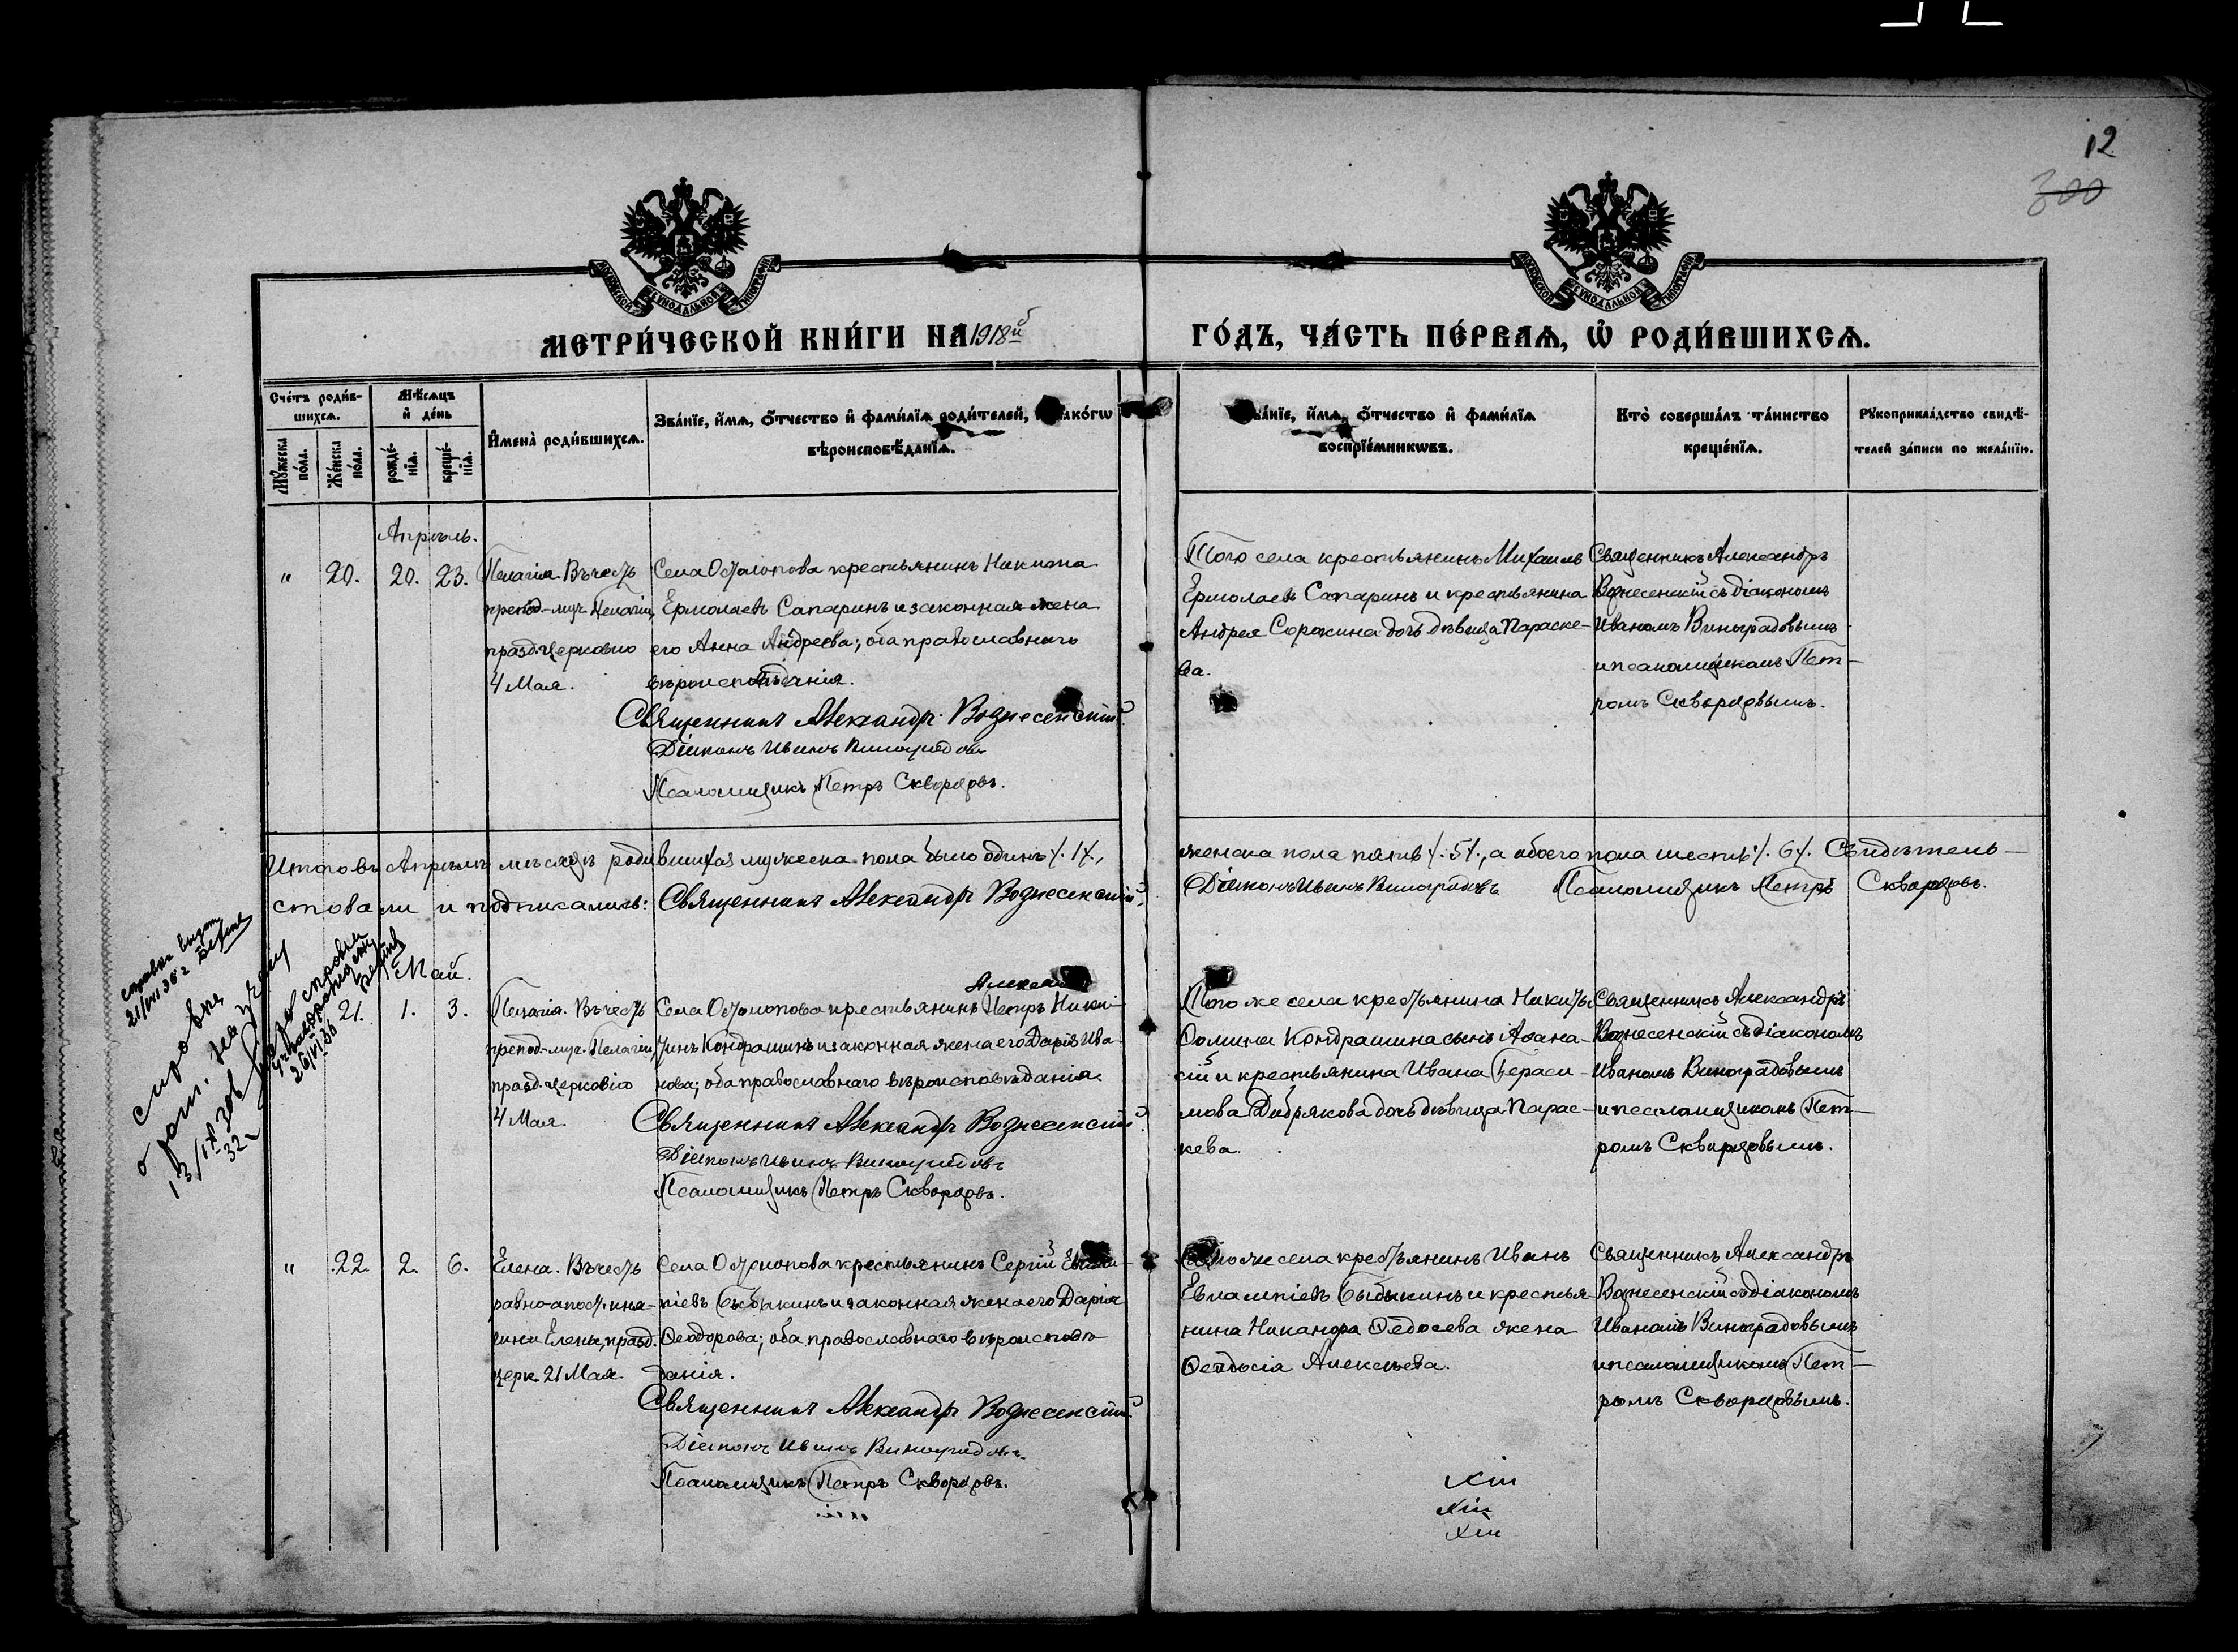 12
300
МОСКОВСКОЙ СѴНОДАЛЬНОЙ ТИПОГРАФІИ
МОСКОВСКОЙ СѴНОДАЛЬНОЙ ТИПОГРАФІИ
МЕТРИ́ЧЕСКОЙ КНИ́ГИ НА 1918й
ГО́ДЪ, ЧА́СТЬ ПЕ́РВАѦ, Ѡ РОДИ́ВШИХСѦ.
Сче́тъ роди́в-
шихсѧ.
Мꙋ́жеска по́ла.
Же́нска по́ла.
Мѣ́сѧцъ
и де́нь
рожде́-
нїѧ.
креще́-
нїѧ.
И҆мена̀ роди́вшихсѧ.
Зва́нїе, и҆́мѧ, ѻ҆́тчество и҆ фами́лїѧ роди́телей, и҆ како́гѡ
вѣроисповѣ́данїѧ.
Зва́нїе, и҆́мѧ, ѻ҆́тчество и҆ фами́лїѧ
воспрїе́мникѡвъ.
Кто̀ соверша́лъ та́инство
креще́нїѧ.
Рꙋкоприкла́дство свидѣ́-
телей за́писи по жела́нїю.
Апрѣль.
" 20. 20. 23.
Пелагія. Въ честь
препод-муч. Пелагіи,
празд. церковію
4 Мая.
Села Остолопова крестьянинъ
Ермолаевъ Сапаринъ и законная жена
его Анна Андреева; оба православнаго
вѣроисповѣданія.
Священникъ Александръ Вознесенскій.
Діаконъ Иванъ Виноградовъ
Псаломщикъ Петръ Скворцовъ.
Того села крестьянинъ Михаилъ
Ермолаевъ Сапаринъ и крестьянина
Андрея Сорокина дочь дѣвица Параске-
ва.
Священникъ Александръ
Вознесенскій съ діакономъ
Иваномъ Виноградовымъ
и псаломщикомъ Пет-
ромъ Скворцовымъ.
Итого въ Апрѣлѣ мѣсяцѣ родившихся мужеска пола было одинъ /. 1 /.,
женска пола пять /. 5 /., а обоего пола шесть /. 6 /. Свидѣтель-
ствовали и подписались: Священникъ Александръ Вознесенскій,
Діаконъ Иванъ Виноградовъ Псаломщикъ Петръ Скворцовъ.
справка
21/VII 36 г
справка
о рожд.
32 г
26/VI 36
Май.
21. 1. 3.
Пелагія. Въ честь
препод-муч. Пелагіи,
празд. церковію
4 Мая.
Села Остолопова крестьянинъ Петръ Ники-
тинъ Кондрашинъ и законная жена его Дарія Ива-
нова; оба православнаго вѣроисповѣданія.
Священникъ Александръ Вознесенскій.
Діаконъ Иванъ Виноградовъ
Псаломщикъ Петръ Скворцовъ.
Того же села крестьянина Никиты
Ѳомина Кондрашина сынъ Аѳана-
сій и крестьянина Ивана Гераси-
мова Добрякова дочь дѣвица Парас-
кева.
Священникъ Александръ
Вознесенскій съ діакономъ
Иваномъ Виноградовымъ
и псаломщикомъ Пет-
ромъ Скворцовымъ.
" 22. 2. 6.
Елена. Въ честь
равно-апост. кня-
гини Елены, празд.
церк. 21 Мая.
Села Остолопова крестьянинъ Сергій
піевъ и законная жена его Дарія
Ѳеодорова; оба православнаго вѣроисповѣ-
данія.
Священникъ Александръ Вознесенскій.
Діаконъ Иванъ Виноградовъ
Псаломщикъ Петръ Скворцовъ.
же села крестьянинъ Иванъ
Евлампіевъ и крестья-
нина Никанора Ѳедосѣева жена
Ѳеодосія Алексѣева.
Священникъ Александръ
Вознесенскій съ діакономъ
Иваномъ Виноградовымъ
и псаломщикомъ Пет-
ромъ Скворцовымъ.